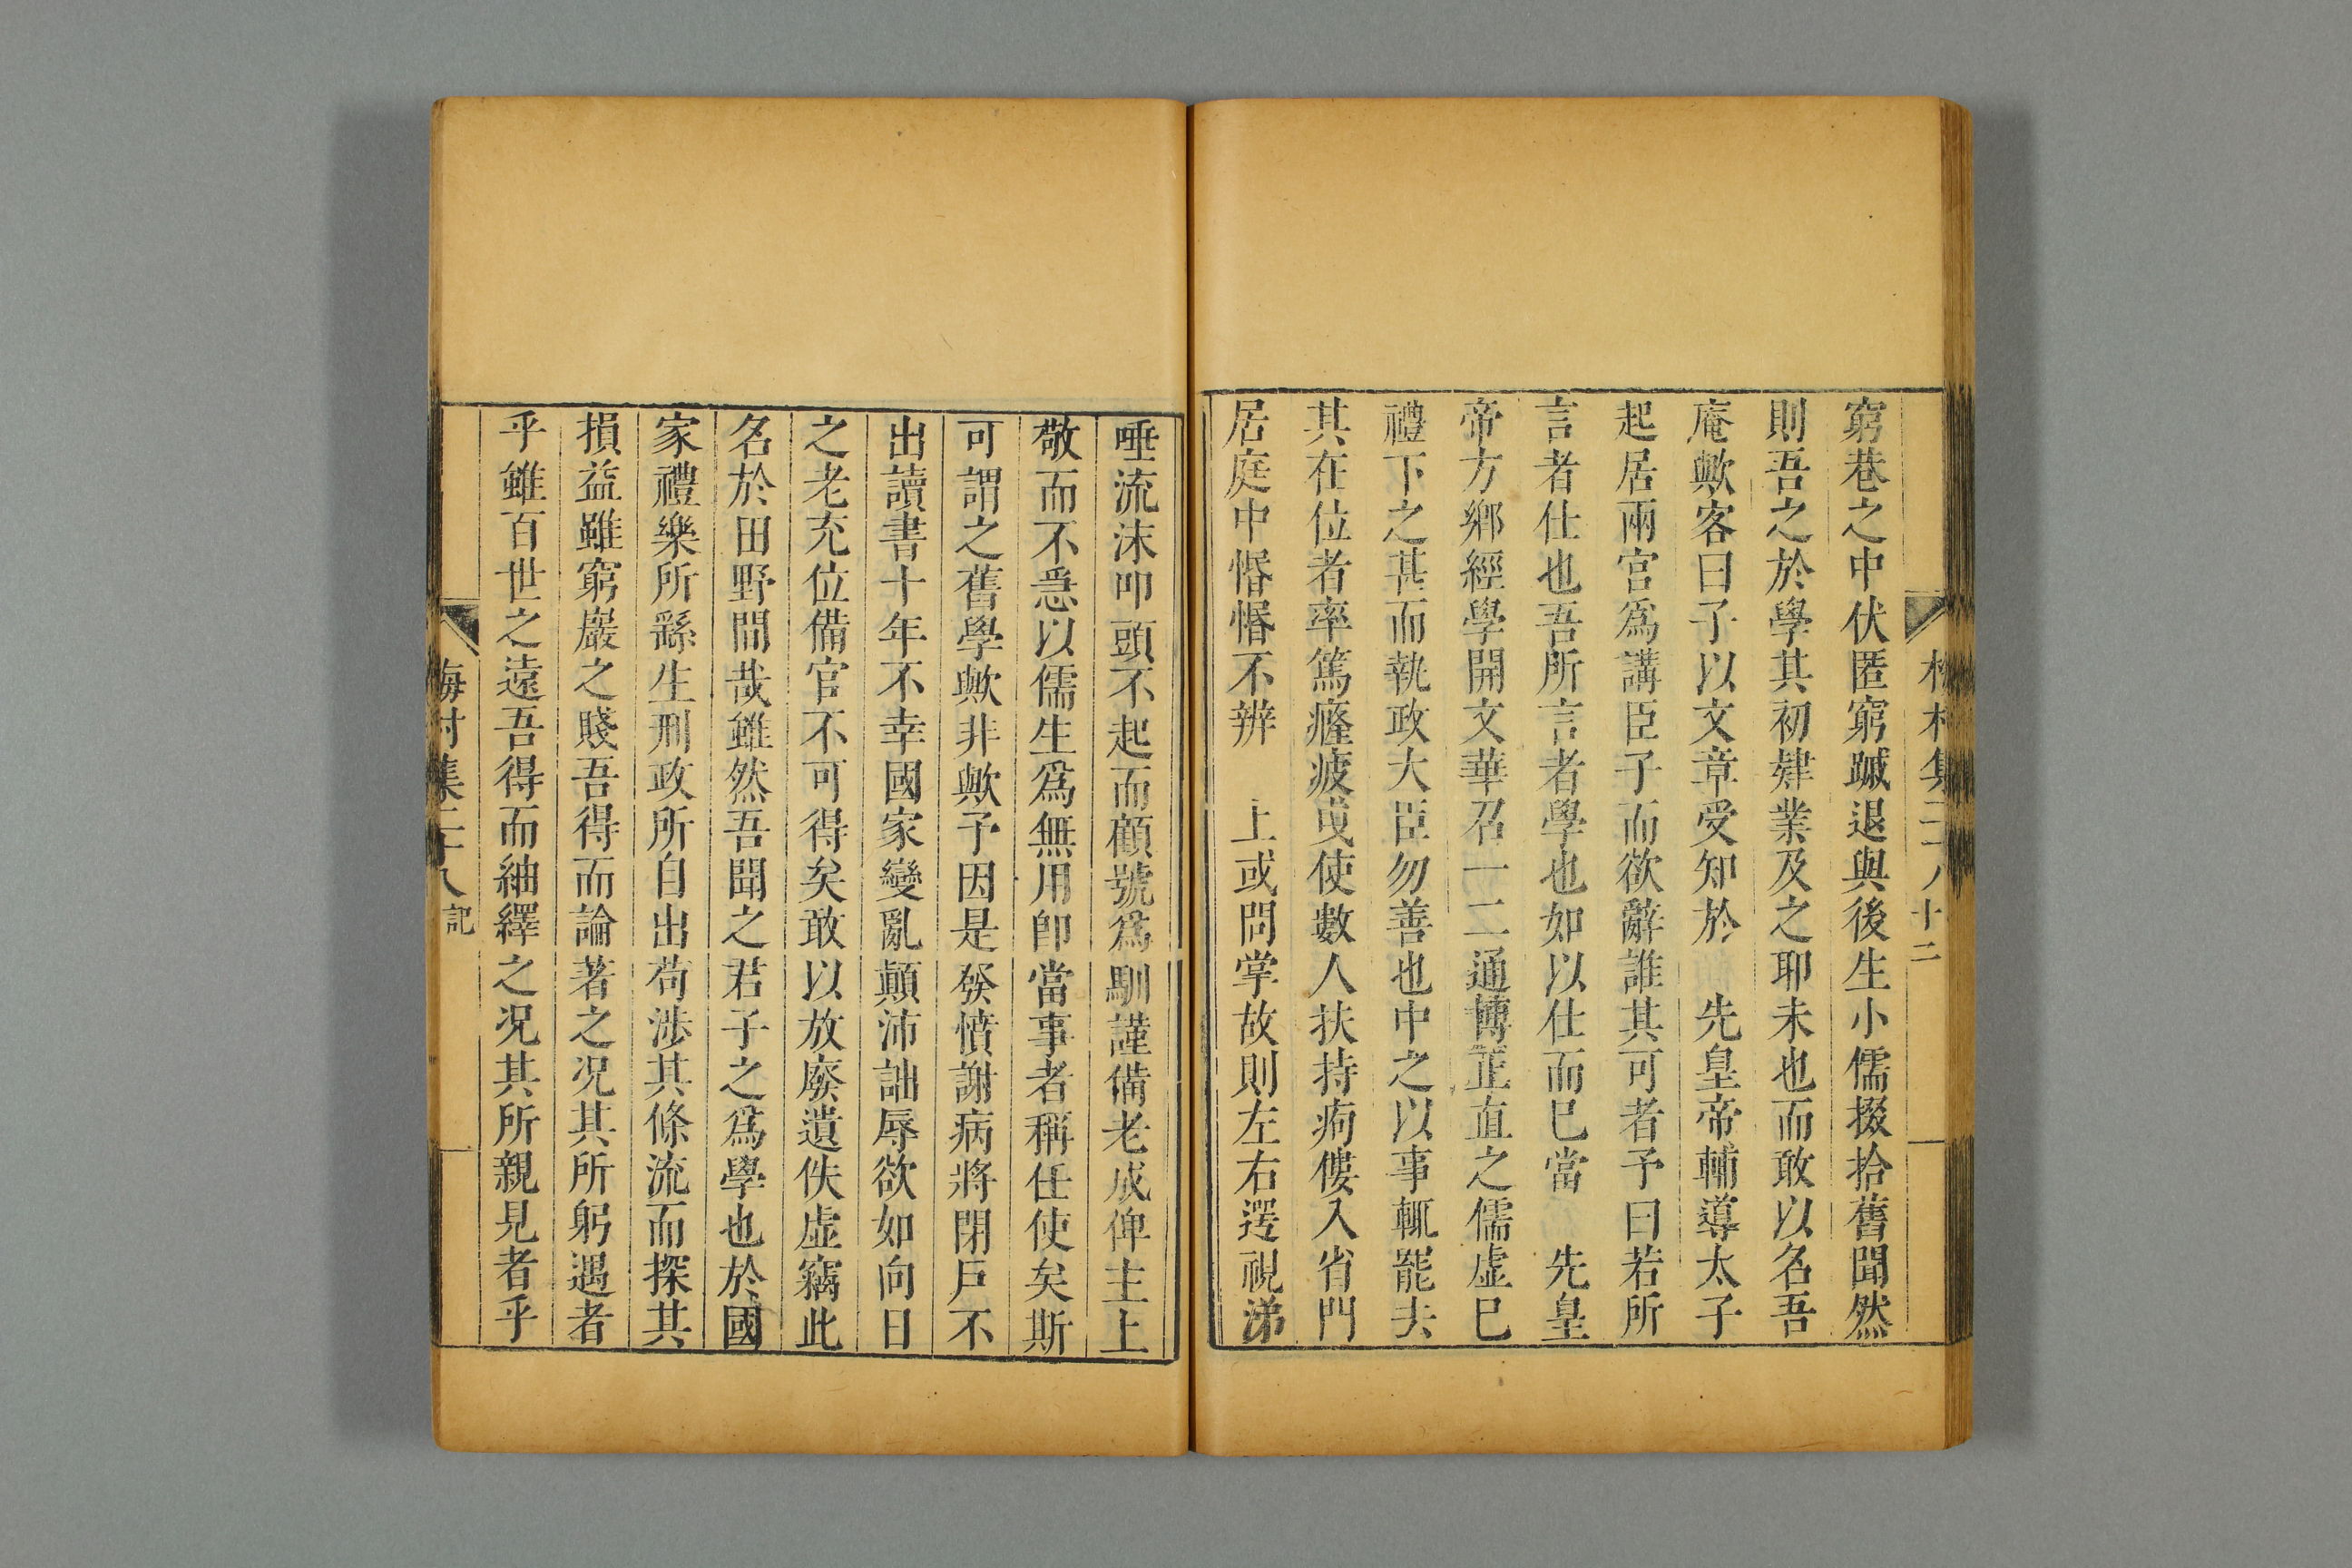 梅村集二十八 十二
窮巷之中伏匿窮蹙退與後生小儒掇拾舊聞然
則吾之於學其初肄業及之耶未也而敢以名吾
庵歟客曰子以文章受知於 先皇帝輔導太子
起居兩宮爲講臣子而欲辭誰其可者予曰若所
言者仕也吾所言者學也如以仕而已當 先皇
帝方鄉經學開文華召一二通博正直之儒虛已
禮下之甚而執政大臣勿善也中之以事輒罷去
其在位者率篤癃疲曳使數人扶持痀僂入省門
居庭中惛惛不辨 上或問掌故則左右遌視涕
唾流沫叩頭不起而顧號爲馴謹備老成俾主上
敬而不急以儒生爲無用卽當事者稱任使矣斯
可謂之舊學歟非歟予因是發憤謝病將閉戸不
出讀書十年不幸國家變亂顚沛詘辱欲如向日
之老充位備官不可得矣敢以放廢遺佚虛竊此
名於田野間哉雖然吾聞之君子之爲學也於國
家禮樂所繇生刑政所自出苟涉其條流而探其
損益雖窮巖之賤吾得而論著之况其所躬遇者
乎雖百世之遠吾得而紬繹之况其所親見者乎
梅村集二十八 記